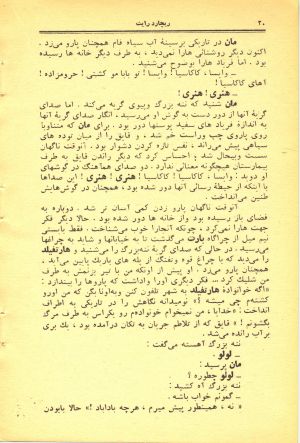 ۲۰ ریچارد رایت
مان در تاریکی برسینهٔ آب سیاه فام همچنان پارو می‌زد.
اکنون دیگر روشنائی هارا نمی‌دید، به طرف دیگر خانه ها رسیده
بود. اما فریاد هارا بوضوح می‌شنید.
ـ وایسا، کاکاسیا! وایسا! تو بابا مو کشتی! حرومزاده!
آهای کاکاسیا!
ـ هنری! هنری!
مان شنید که ننه بزرگ ویبوی گریه می‌کند. اما صدای
گریهٔ آنها از دور دست به گوش او می‌رسید، انگار صدای گریهٔ آنها
به اندازهٔ فریاد های سفید پوستها دور بود. برای مان که متناوباً
روی پاروی چپ وراست خم شد، و قایق را از میان توده های
سیاهی پیش می‌راند، نفس تازه کردن دشوار بود. آنوقت ناگهان
سست وبیحال شد و احساس کرد که دیگر راندن قایق به طرف
بیمارستان هیچگونه معنائی ندارد. دو صدای هم‌آهنگ در گوشهای
او دوید: وایسا، کاکاسیا! کاکاسیا! هنری! هنری! این صداها
با اینکه از حیطهٔ رسائی آنها دور شده بود، همچنان در گوش‌هایش
طنین می‌انداخت.
آنوقت ناگهان پارو زدن کمی آسان تر شد. دوباره به
فضای باز رسیده بود واز خانه ها دور شده بود. حالا دیگر فکر
جهت هارا نمی‌کرد، چونکه آنجارا خوب می‌شناخت. فقط بایستی
نیم میل از چراگاه بارت می‌گذشت تا به خیابانها و شاید به چراغها
می‌رسید. در حالی که صدای گریهٔ ننه‌بزرگ را می‌شنید، هارتفیلد
را می‌دید که با چراغ قوه وتفنگ از پله های باریک پایین می‌آید.
همچنان پارو می‌زد. او پیش از اونکه من با تیر بزنمش به طرف
من شلیک کرد... فکر دیگری اورا واداشت که پاروها را بیندازد:
«اگه خونوادهٔ هارتفیلد به شهر تلفون کنن وبه‌اونابگن که من اورو
کشته‌م چی میشه؟» نومیدانه نگاهش را در تاریکی به اطراف
انداخت: «خدایا، من نمیخوام خونواده‌م رو یکراس به طرف مرگ
بکشونم!» قایق که از تلاطم جریان به تکان درآمده بود، یک بری
برآب رانده می‌شد.
ننه بزرگ آهسته می‌گفت:
ـ لولو.
مان پرسید:
ـ لولو چطوره؟
ننه بزرگ آه کشید:
ـ گمونم خواب باشه.
«نه، همینطور پیش میرم، هرچه باداباد!» حالا بابودن